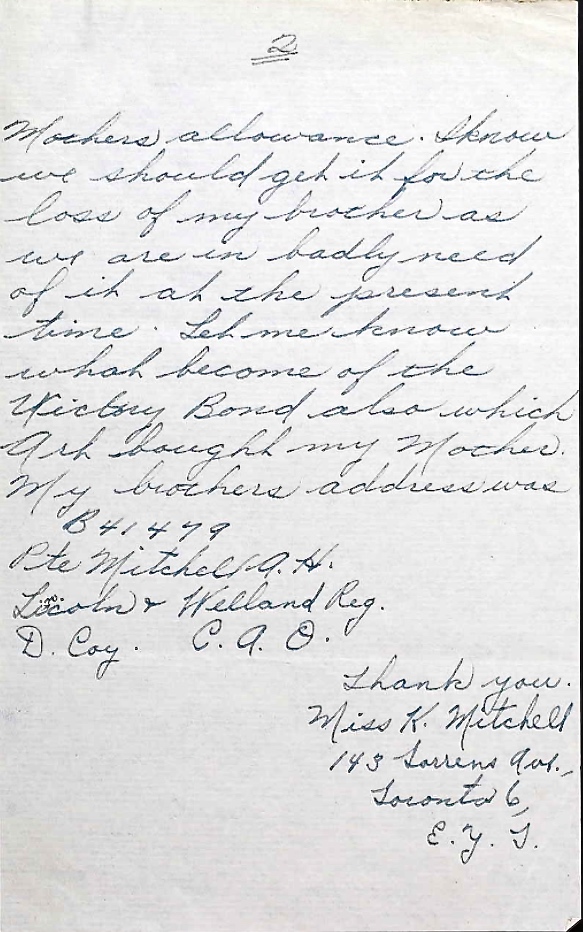 2
Mothers allowance. I know
we should get it for the
loss of my brother as
we are in badly need
of it at the present
time. Let me know
what become of the
Victory Bond also which
Art bought my Mother.
My brothers address was
B41479
Pte Mitchell A. H.
Lincoln & Welland Reg.
D. Coy. C. A. O.
Thank you.
Miss K. Mitchell
143 Torrens Ave.,
Toronto 6,
E. Y. T.